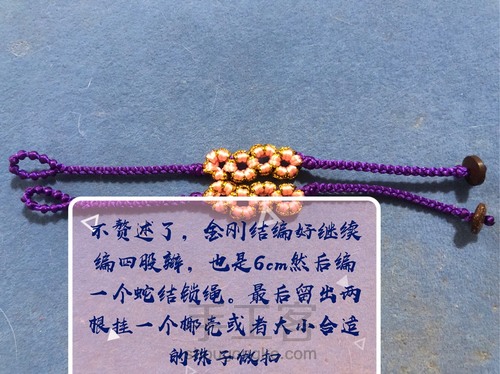 不赘述了，金刚结编好继续
编四股辫，也是6cm然后编
一个蛇结锁绳。最后留出两
根挂一个椰壳或者大小合适
的珠子做扣